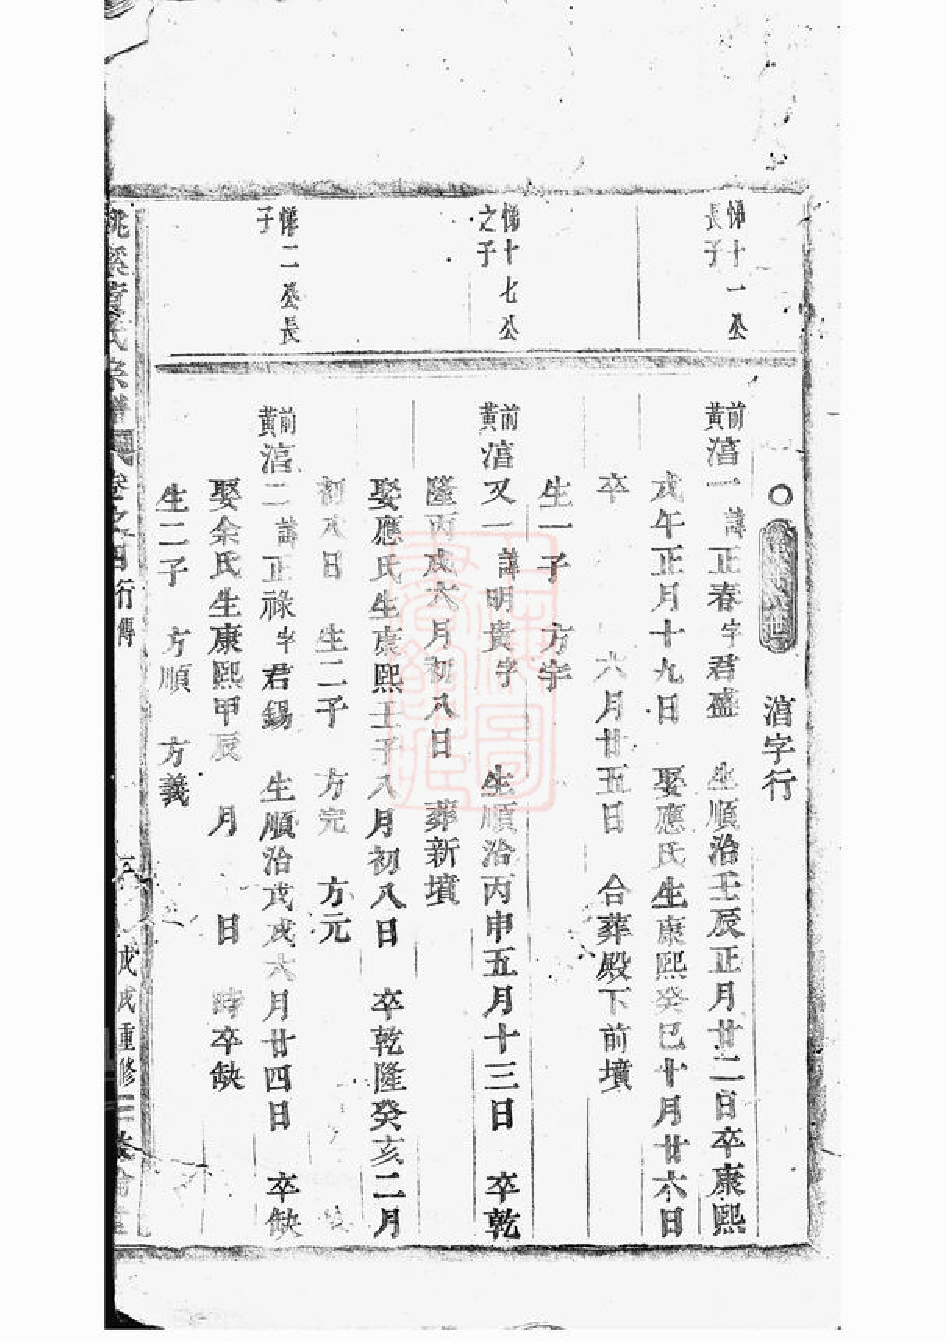 湆字行
悌十一公
長子
前黄湆一諱正春字君盛 生順治壬辰正月廿二日卒康熙
戊午正月十九日 娶應氏生康熙癸巳十月廿六日
卒 六月廿五日 合葬殿下前墳
生一子 方宇
悌十七公
之子
前黄湆又一諱明貴字 生順治丙申五月十三日 卒乾
隆丙戌六月初八日 葬新墳
娶應氏生康熙壬子八月初八日 卒乾隆癸亥二月
初八日 生二子 方完 方元
悌二公長
子
前黄湆二諱正祿字君錫 生順治戊戌六月廿四日 卒缺
娶余氏生康熙甲辰 月 日 時卒缺
生二子 方順 方義
氏宗譜 卷之四 行傳 戊戌重修